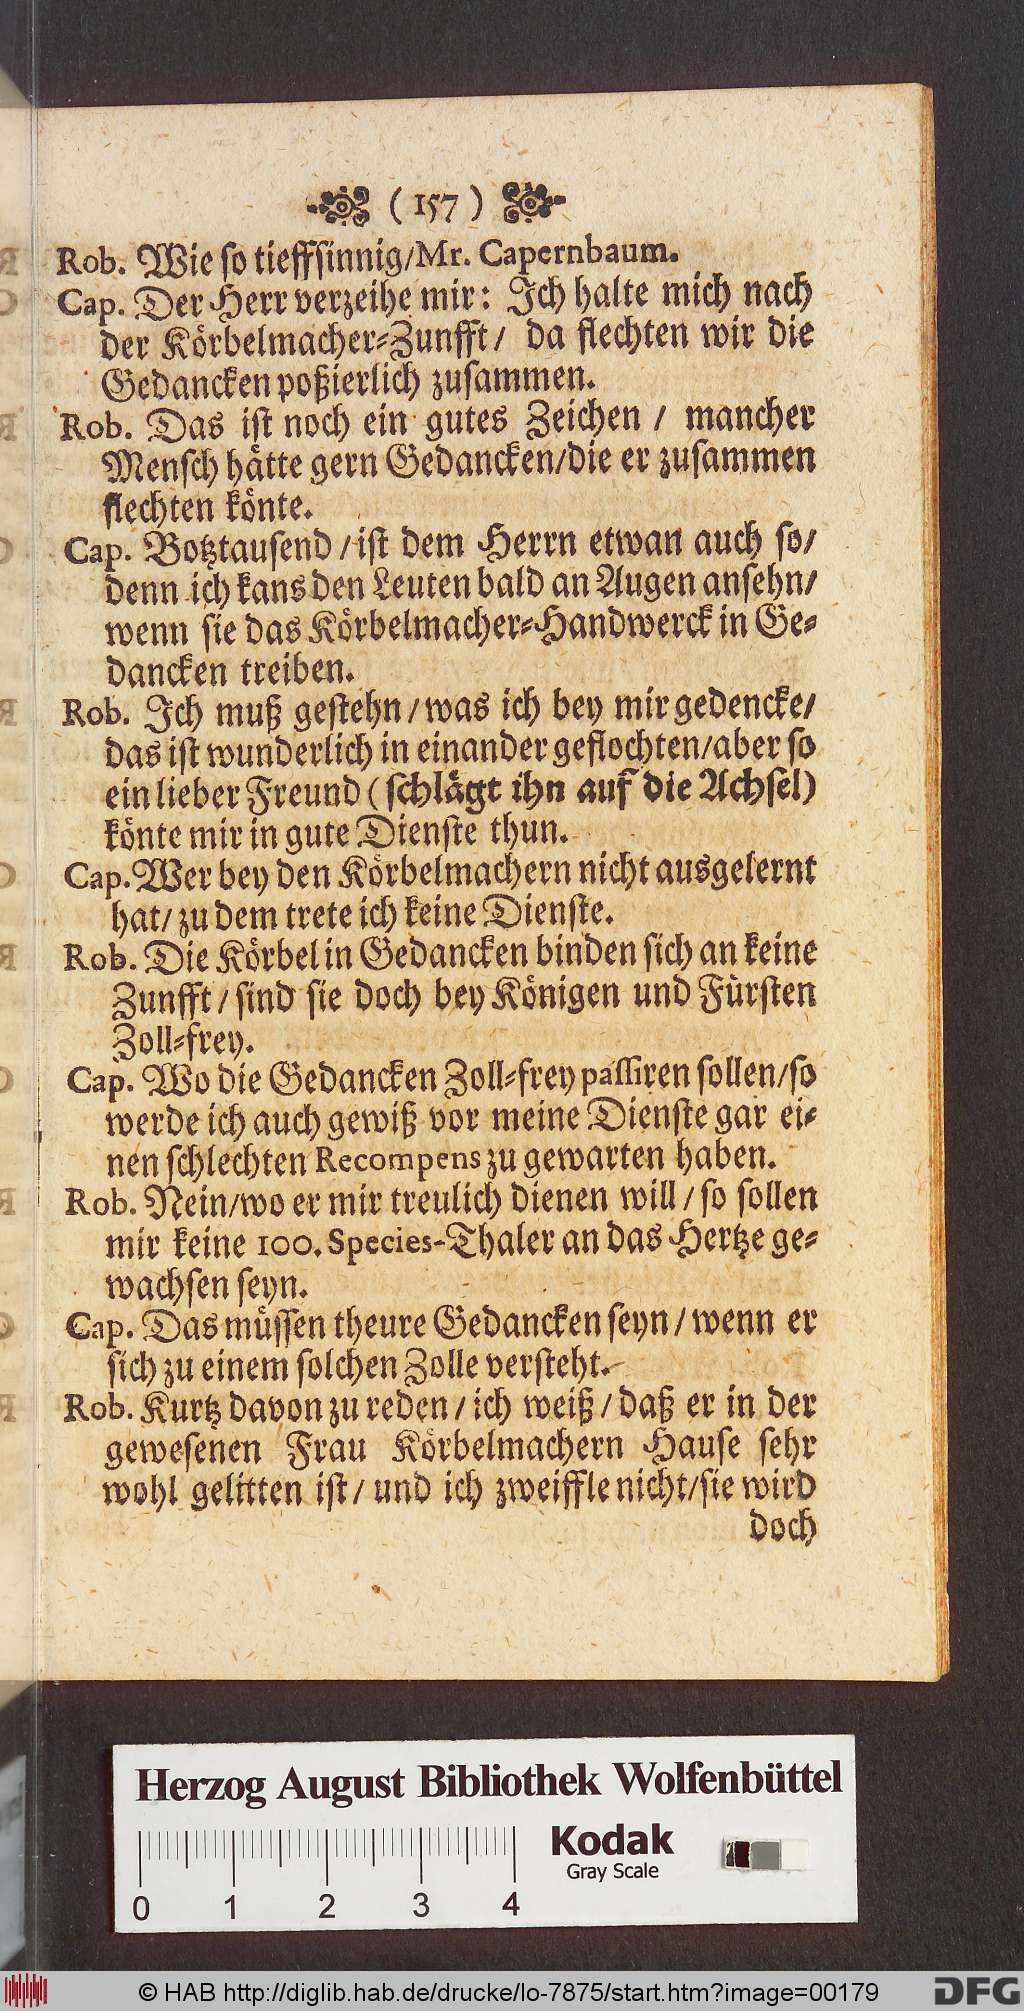 ( 157 )
Rob. Wie so tieffsinnig/Mr. Capernbaum.
Cap. Der Herr verzeihe mir: Ich halte mich nach
der Körbelmacher-Zunfft/ da flechten wir die
Gedancken poßierlich zusammen.
Rob. Das ist noch ein gutes Zeichen / mancher
Mensch hätte gern Gedancken/die er zusammen
flechten könte.
Cap. Botztausend /ist dem Herrn etwan auch so/
denn ich kans den Leuten bald an Augen ansehn/
wenn sie das Körbelmacher-Handwerck in Ge-
dancken treiben.
Rob. Ich muß gestehn /was ich bey mir gedencke/
das ist wunderlich in einander geflochten/aber so
ein lieber Freund (schlägt ihn auf die Achsel)
könte mir in gute Dienste thun.
Cap. Wer bey den Körbelmachern nicht ausgelernt
hat/ zu dem trete ich keine Dienste.
Rob. Die Körbel in Gedancken binden sich an keine
Zunfft / sind sie doch bey Königen und Fürsten
Zoll-frey.
Cap. Wo die Gedancken Zoll-frey passiren sollen/so
werde ich auch gewiß vor meine Dienste gar ei-
nen schlechten Recompens zu gewarten haben.
Rob. Nein/wo er mir treulich dienen will / so sollen
mir keine 100. Species-Thaler an das Hertze ge-
wachsen seyn.
Cap. Das müssen theure Gedancken seyn / wenn er
sich zu einem solchen Zolle versteht.
Rob. Kurtz davon zu reden / ich weiß / daß er in der
gewesenen Frau Körbelmachern Hause sehr
wohl gelitten ist / und ich zweiffle nicht/sie wird
doch
Herzog August Bibliothek Wolfenbüttel
Kodak
Gray Scale
0 1 2 3 4
© HAB http://diglib.hab.de/drucke/lo-7875/start.htm?image=00179
DFG